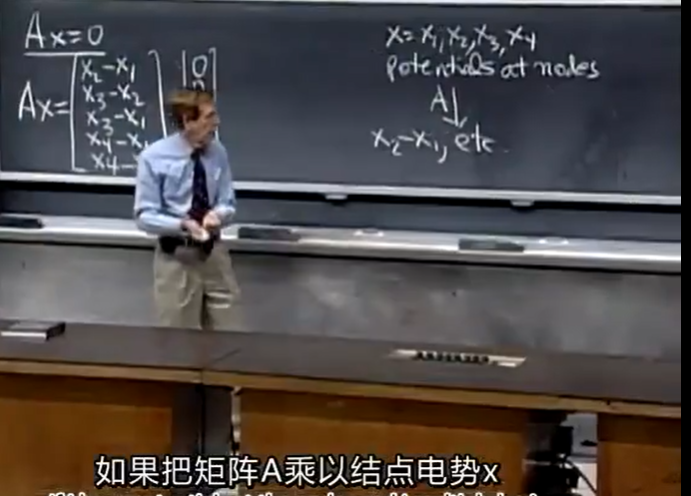 Ax=0
Ax=
x₂-x₁
x₃-x₂
x₃-x₁
x₄-x₁
x₄-
0
x=x₁,x₂,x₃,x₄
potentials at nodes
A↓
x₂-x₁, etc.
如果把矩阵A乘以结点电势x